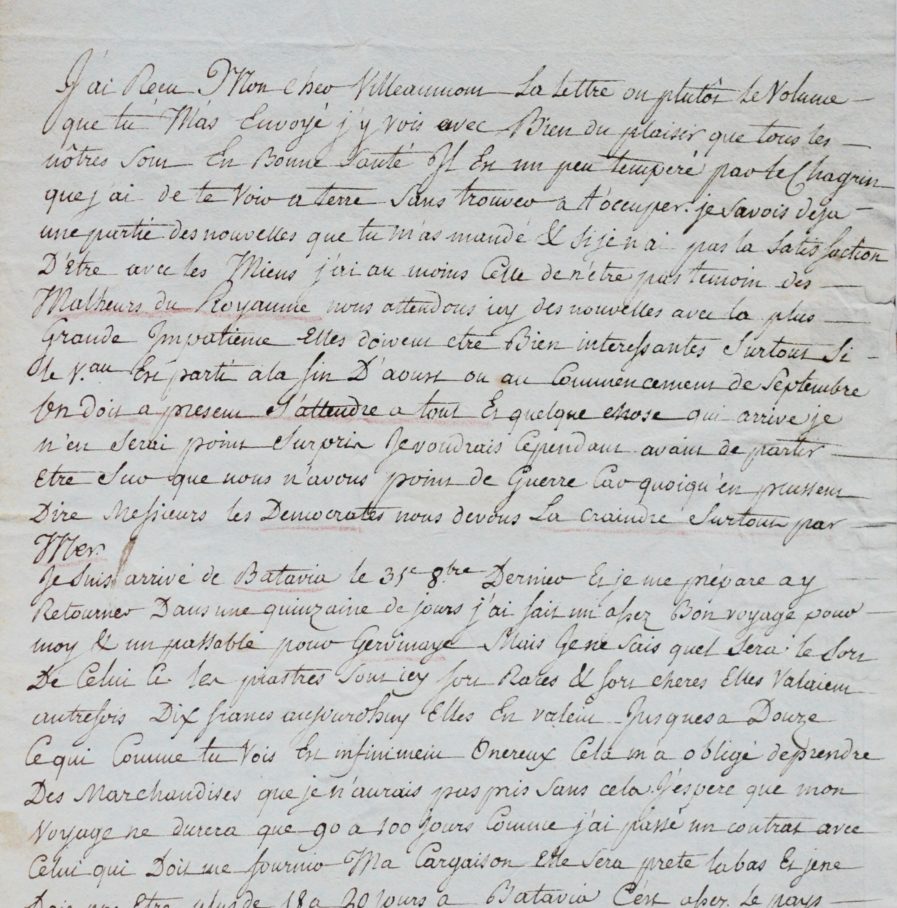 J'ai Recu Mon cher Villeaumont La Lettre ou plutôt Le Volume
que tu M'as Envoyé j'y vois avec Bien du plaisir que tous les
nôtres sont En Bonne Santé Il En un peu tempéré par le Chagrin
que j'ai de te Voir a terre Sans trouver a t'occuper. je Savois deja
une partie des nouvelles que tu m'as mandé & si je n'ai pas la Satisfaction
D'Etre avec les Miens j'ai au moins Celle de n'être pas temoin des
Malheurs du Royaume nous attendons icy des nouvelles avec la plus
Grande Impatience Elles doivent etre Bien interessantes Surtout Si
le V.au Est parti a la fin D'aoust ou au Commencement de Septembre
On doit a present S'attendre a tout Et quelque chose qui arrive je
n'en Serai point Surpris Je voudrais Cependant avant de partir
Etre Sur que nous n'avons point de Guerre Car quoiqu'en pussent
Dire Messieurs les Democrates nous devons La craindre Surtout par
Mer.
Je Suis arrivé de Batavia le 31e 8bre Dernier Et je me prépare a y
Retourner Dans une quinzaine de jours j'ai fait un assez Bon voyage pour
moy & un passable pour Mais Je ne Sais quel Sera le Sort
De Celui Ci Les piastres Sont icy fort Rares & fort cheres Elles Valaient
autrefois Dix francs aujourdhuy Elles En valent Jusques a Douze
Ce qui Comme tu Vois Est infiniment Onereux Cela m'a obligé de prendre
Des Marchandises que je n'aurais pas pris Sans cela J'espere que mon
Voyage ne durera que 90 a 100 Jours Comme j'ai passé un contrat avec
Celui qui Doit me fournir Ma Cargaison Elle Sera prete labas Et je ne
Dois pas Etre plus de 18 a 20 Jours a Batavia C'est assez Le pays